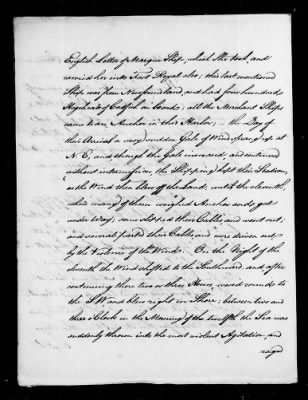 English Letter of Marque Ship, which She took, and
carried her into Port Royal also; this last mentioned
Ship was from Newfoundland, and had four hundred
Hogsheads of Codfish on board: all the Merchant Ships
came to an Anchor in this Harbor; — the Day of
their Arrival a very sudden Gale of Wind sprung up at
N. E, and though the Gale increased, and continued
without intermission, the Shipping kept their Station,
as the Wind then blew off the Land; until the eleventh,
when many of them weighed Anchor and got
under Way; some slipped their Cables and went out;
and several parted their Cables, and were driven out
by the Violence of the Winds. On the Night of the
eleventh the Wind shifted to the Southward, and after
continuing there two or three Hours, veered round to
the SW and blew right in Shore; between two and
three o'Clock in the Morning of the twelfth the Sea was
suddenly thrown into the most violent Agitation, and
raged